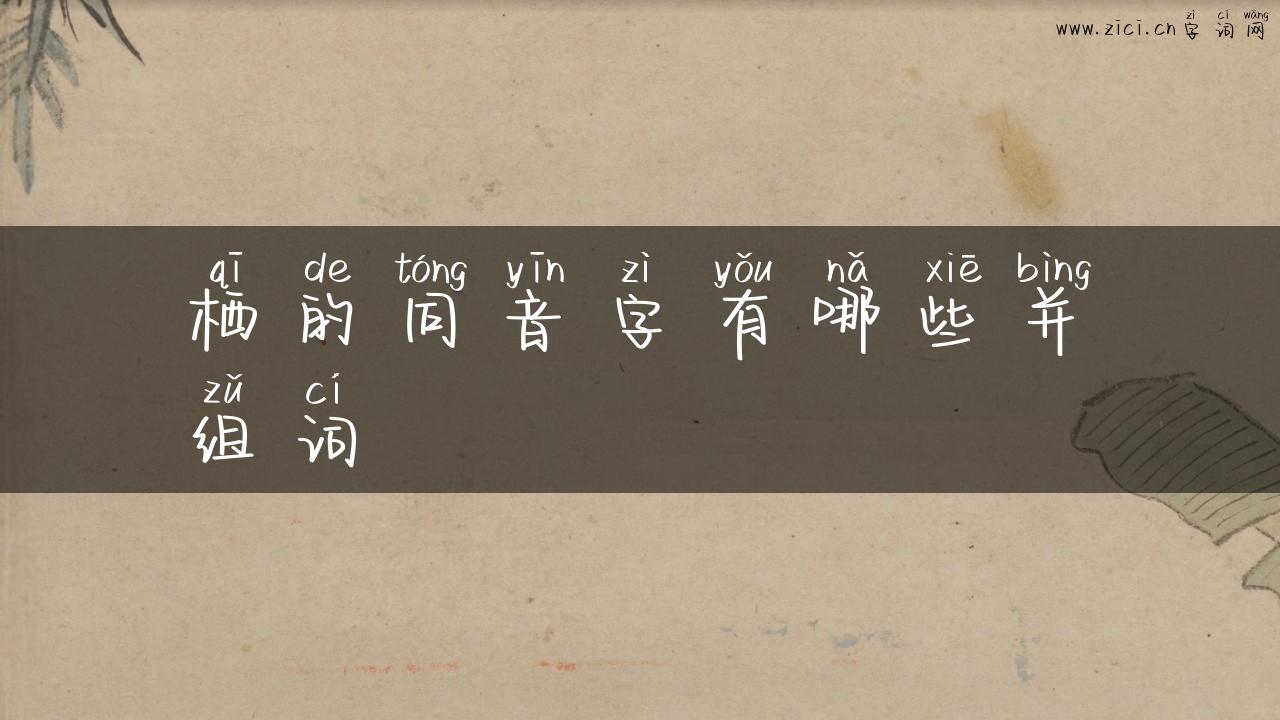 zì cí wǎng
www.zici.cn 字 词 网
qī de tóng yīn zì yǒu nǎ xiē bìng
栖 的 同 音 字 有 哪 些 并
zǔ cí
组 词